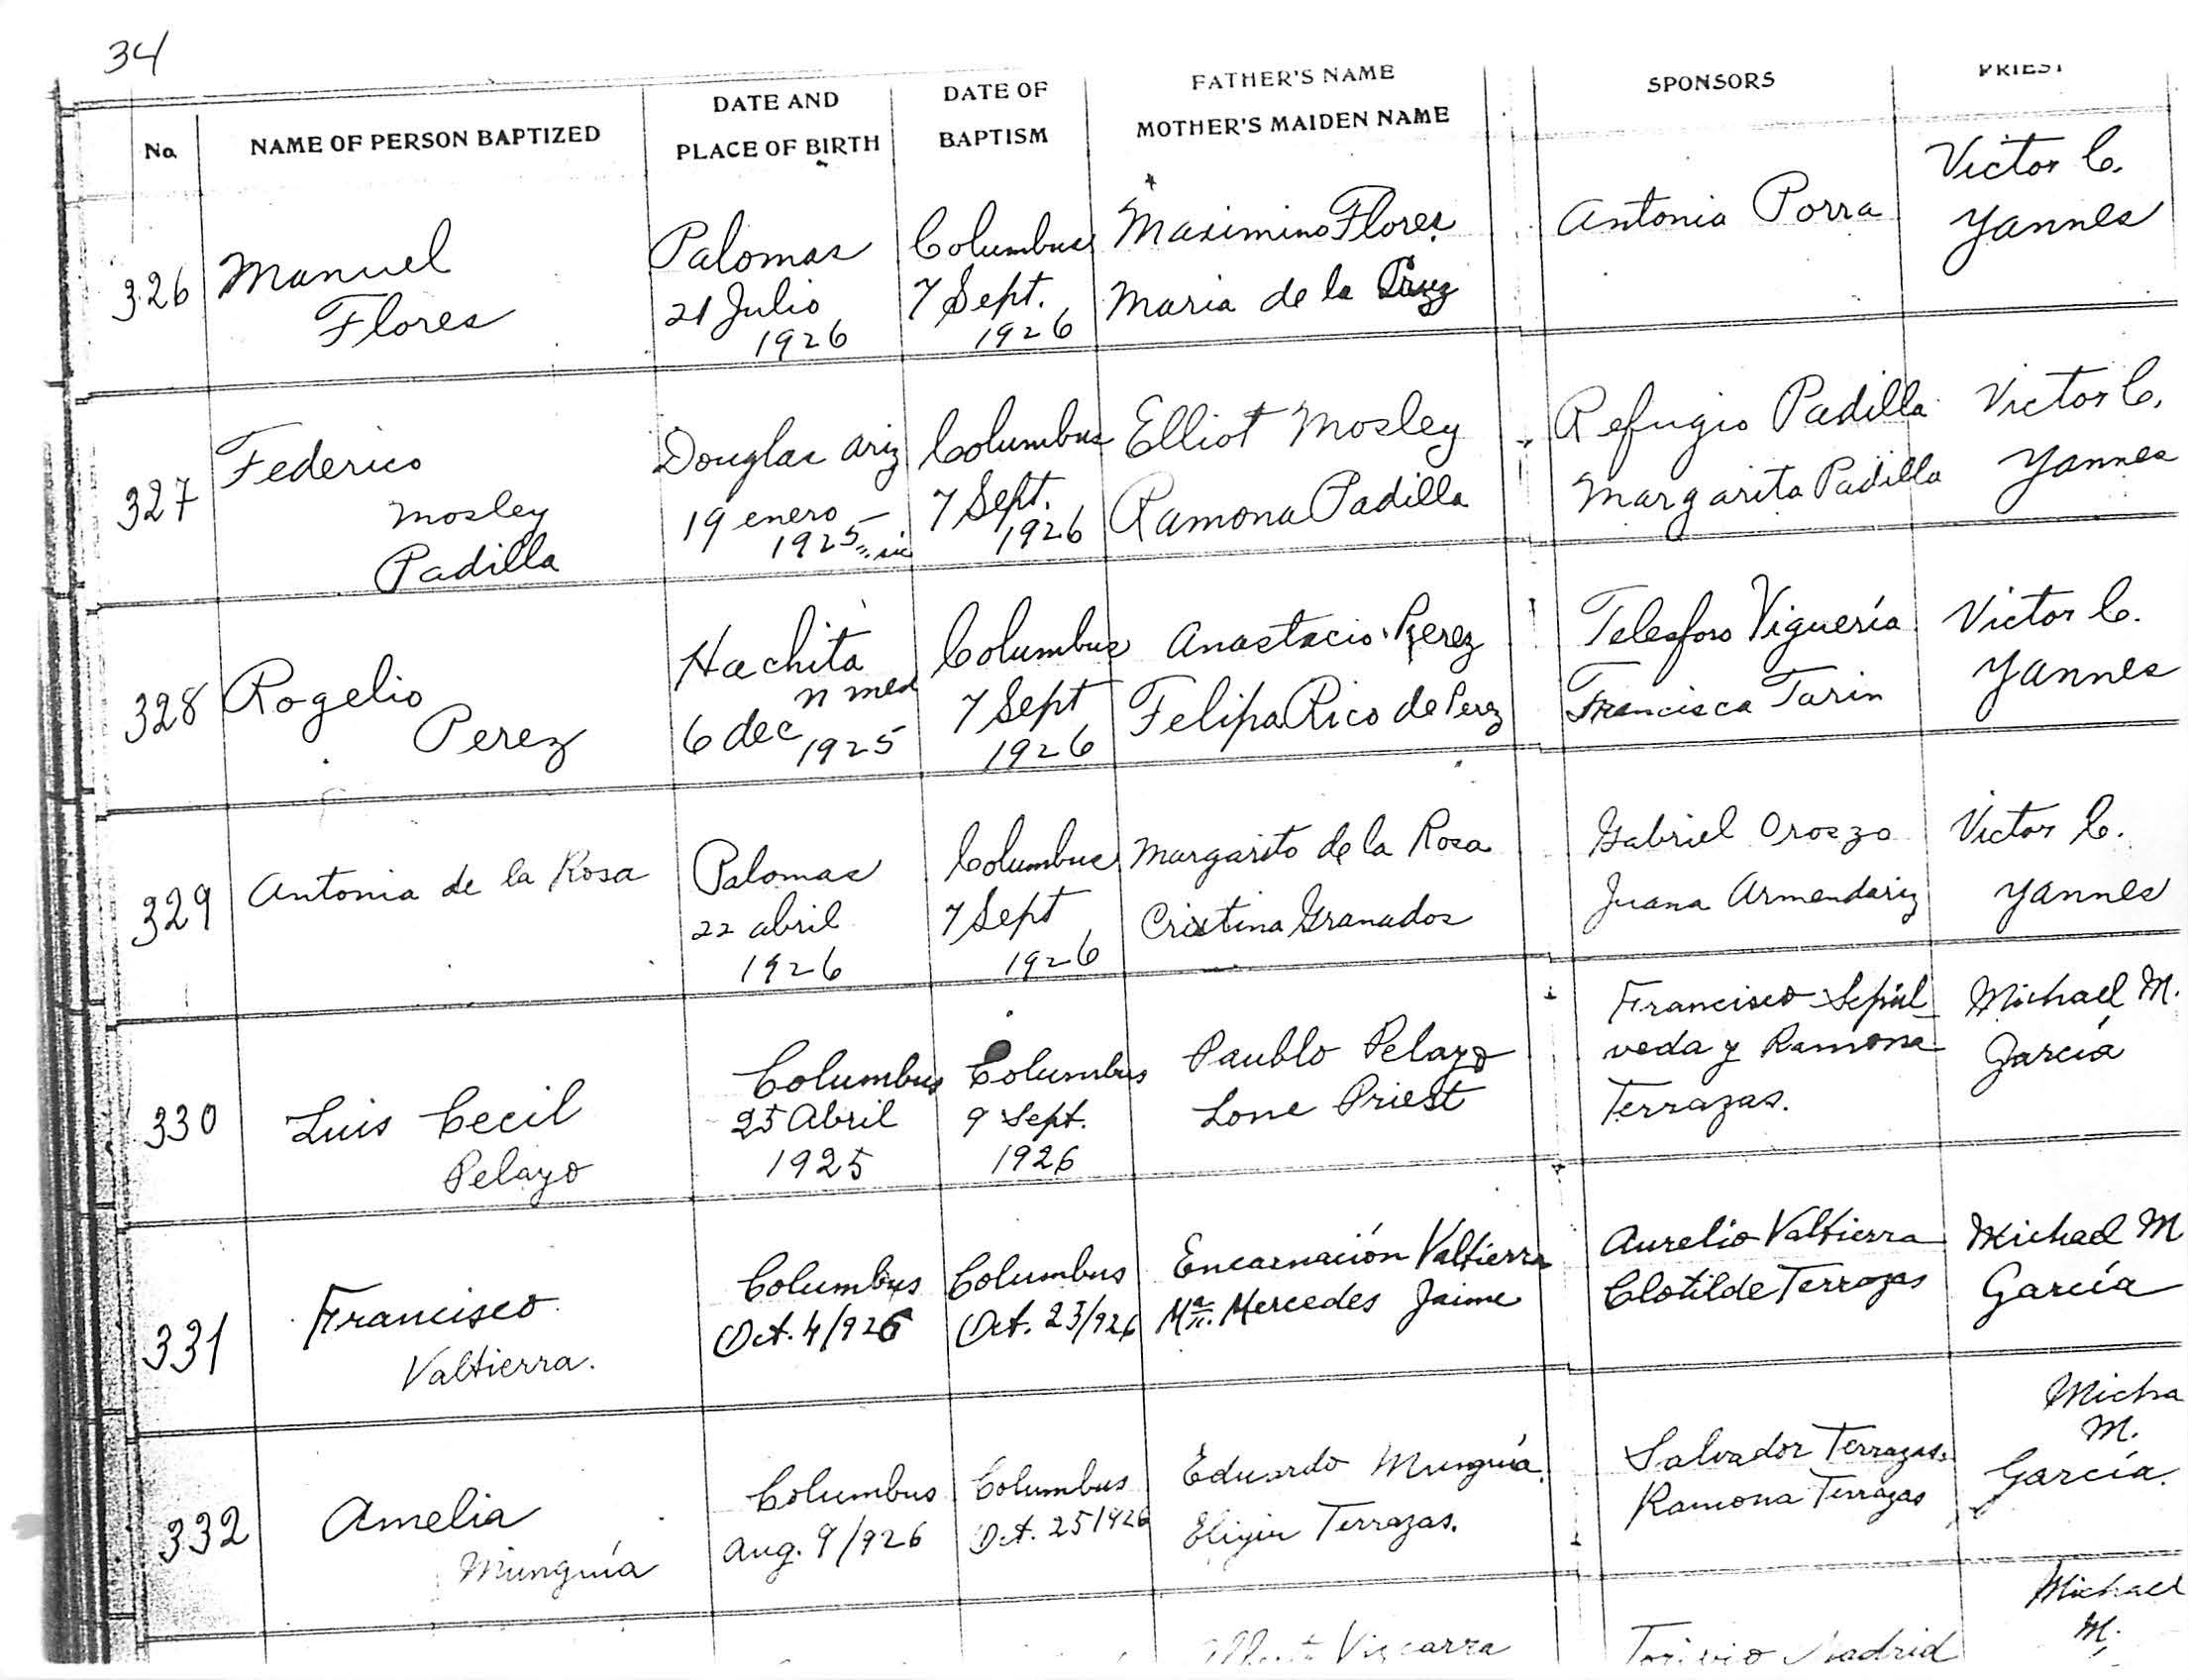 34
No.
NAME OF PERSON BAPTIZED
DATE AND
PLACE OF BIRTH
DATE OF
BAPTISM
FATHER'S NAME
MOTHER'S MAIDEN NAME
SPONSORS
PRIEST
326
Manuel
Flores
Palomas
21 Julio
1926
Columbus
7 Sept.
1926
Maximino Flores
Maria de la Cruz
Antonia Porra
Victor C.
Yannes
327
Federico
Mosley
Padilla
Douglas Ariz
19 enero
1925 sic
Columbus
7 Sept.
1926
Elliot Mosley
Ramona Padilla
Refugio Padilla
Margarita Padilla
Victor C.
Yannes
328
Rogelio
Perez
Hachita
n mex
6 dec
1925
Columbus
7 Sept
1926
Anastacio Perez
Felipa Rico de Perez
Telesforo Viguería
Francisca Tarin
Victor C.
Yannes
329
Antonia de la Rosa
Palomas
22 abril
1926
Columbus
7 Sept
1926
Margarito de la Rosa
Cristina Granados
Gabriel Orozzo
Juana Armendariz
Victor C.
Yannes
330
Luis Cecil
Pelayo
Columbus
25 Abril
1925
Columbus
9 Sept.
1926
Paublo Pelayo
Lone Priest
Francisco Sepúl
veda y Ramona
Terrazas.
Michael M.
García
331
Francisco
Valtierra.
Columbus
Oct. 4/926
Columbus
Oct. 23/926
Encarnación Valtierra
Ma. Mercedes Jaime
Aurelio Valtierra
Clotilde Terrazas
Michael M
García
332
Amelia
Munguía
Columbus
Aug. 9/926
Columbus
Oct. 25/926
Eduardo Munguía.
Terrazas.
Salvador Terrazas.
Ramona Terrazas
Micha
M.
García.
Viscarra
Madrid
Michael
M.